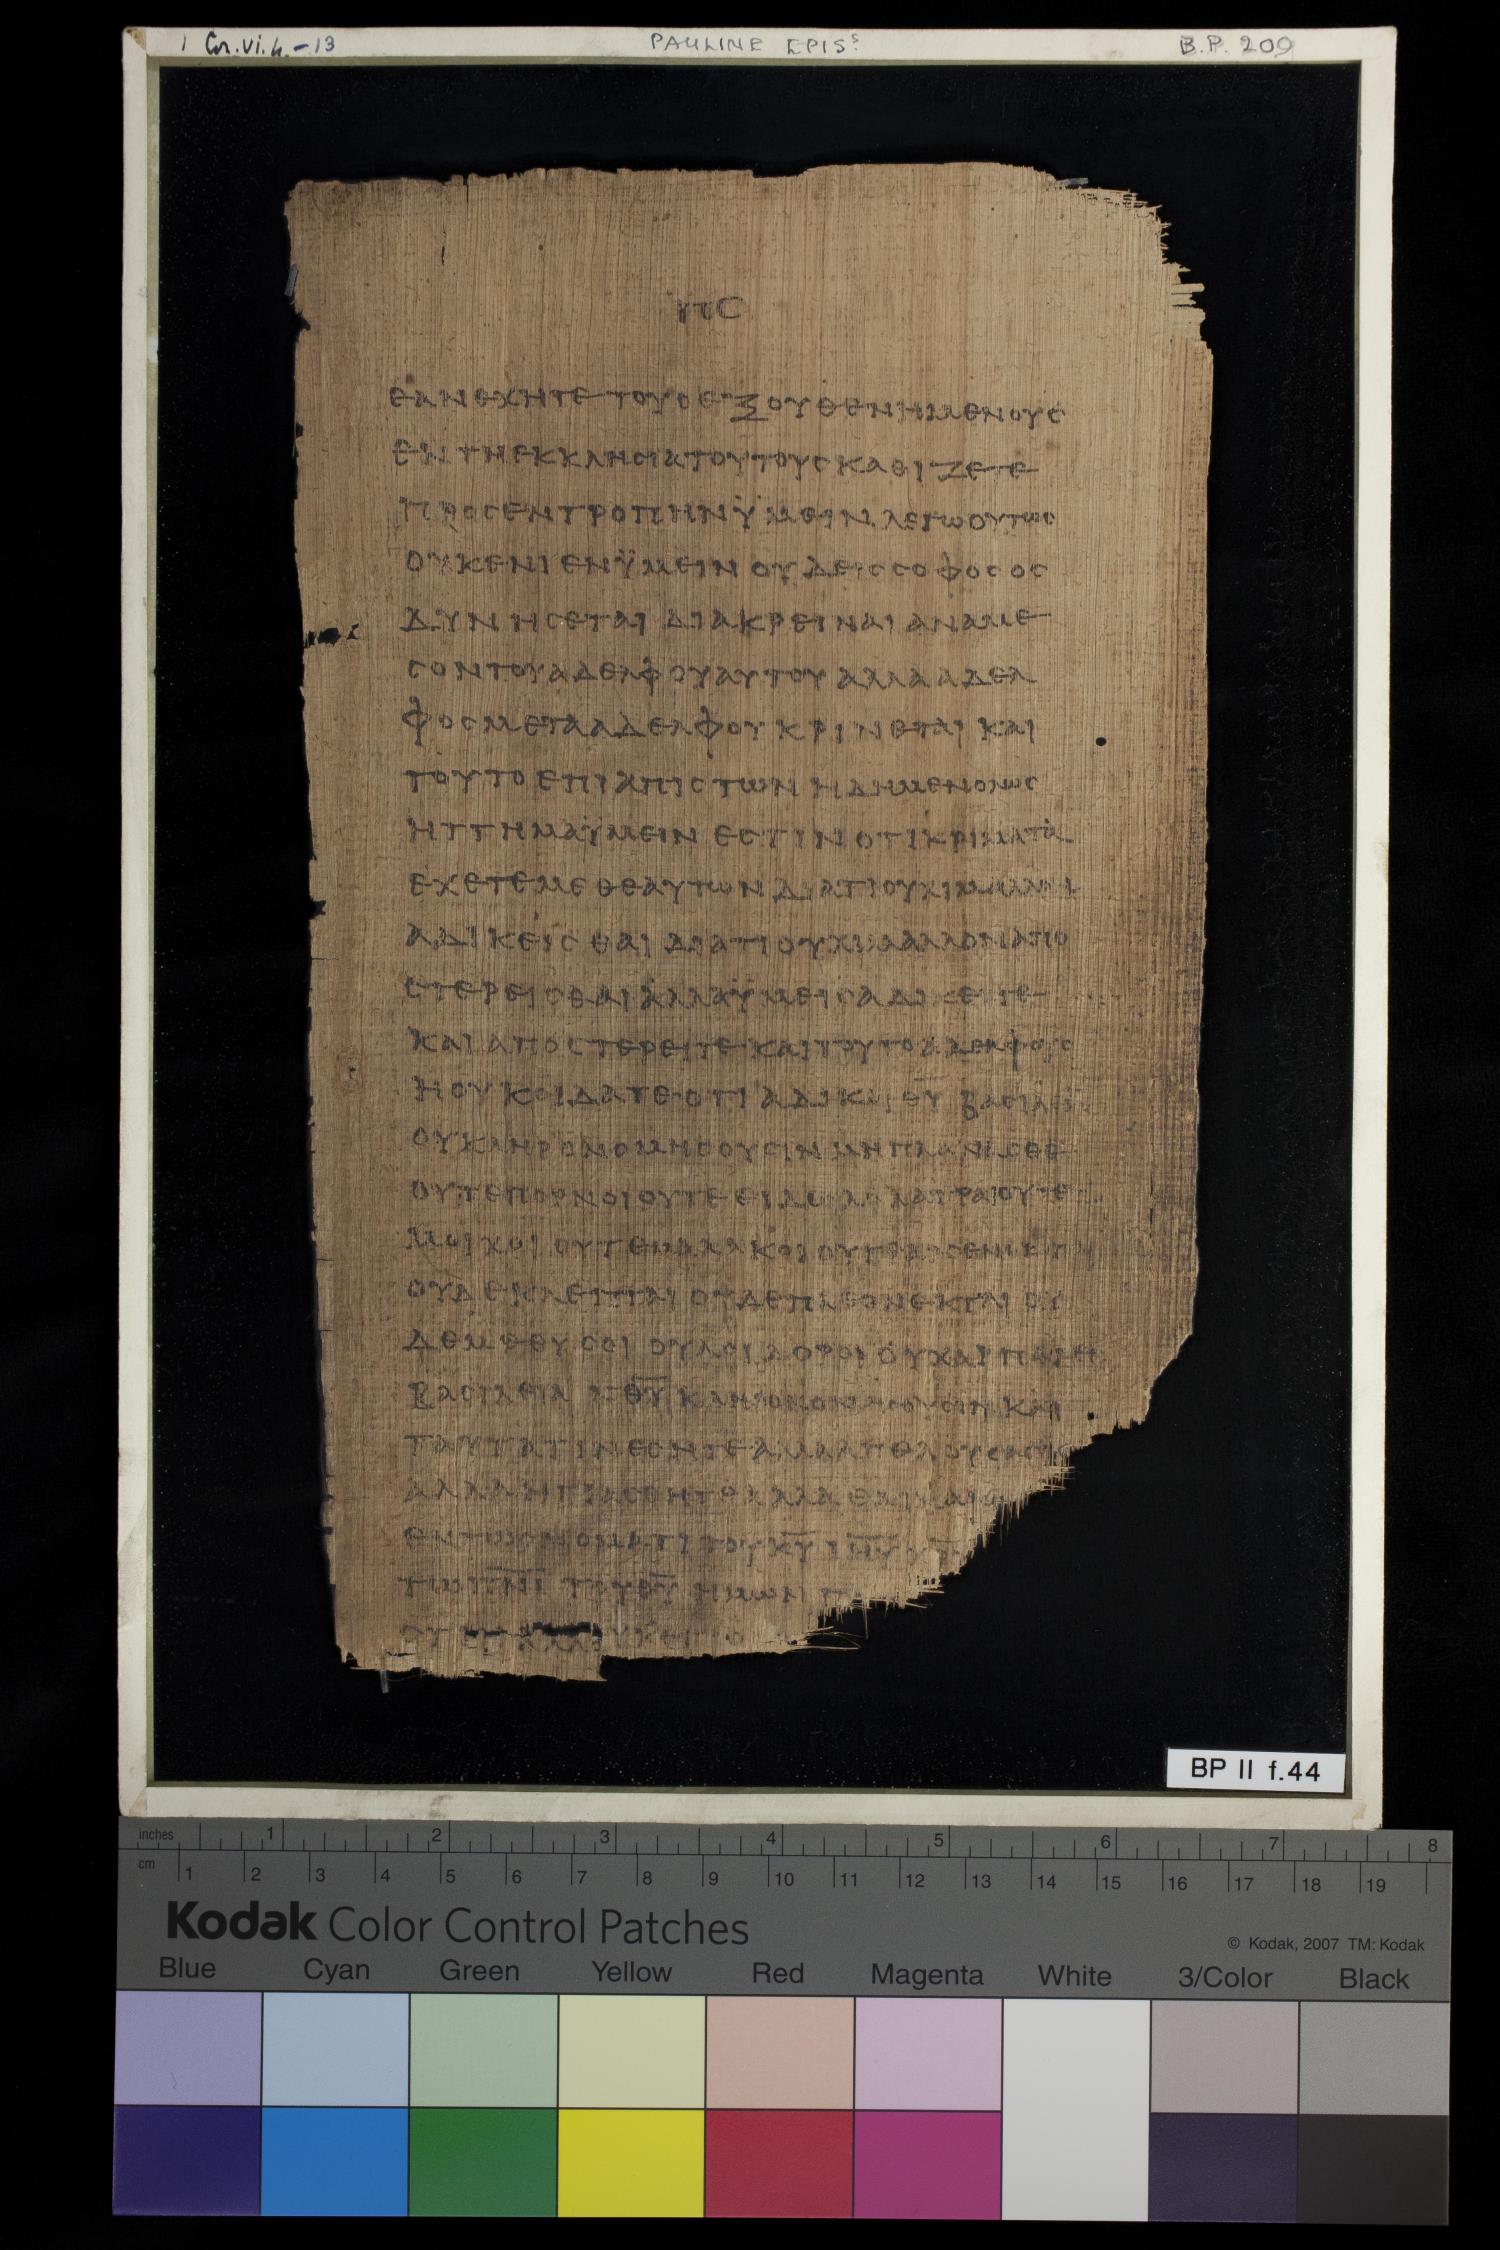 1 Cor. vi. 4.-13 PAULINE EPISˢ. B.P. 209
ΕΑΝΕΧΗΤΕ ΤΟΥΣΕΞΟΥΘΕΝΗΜΕΝΟΥΣ
ΕΝΤΗΕΚΚΛΗСΙΑΤΟΥΤΟΥСΚΑΘΙΖΕΤΕ
ΠΡΟСΕΝΤΡΟΠΗΝΫΜΕΙΝΛΕΓΩΟΥΤΩС
ΟΥΚΕΝΙΕΝΫΜΕΙΝΟΥΔΕΙССΟΦΟСΟС
ΔΥΝΗСΕΤΑΙΔΙΑΚΡΕΙΝΑΙΑΝΑΜΕ
СΟΝΤΟΥΑΔΕΛΦΟΥΑΥΤΟΥΑΛΛΑΑΔΕΛ
ΦΟСΜΕΤΑΑΔΕΛΦΟΥΚΡΙΝΕΤΑΙΚΑΙ
ΤΟΥΤΟΕΠΙΑΠΙСΤΩΝΗΔΗΜΕΝΟΛΩС
ΗΤΤΗΜΑΫΜΕΙΝΕСΤΙΝΟΤΙΚΡΙΜΑΤΑ
ΕΧΕΤΕΜΕΘΕΑΥΤΩΝΔΙΑΤΙΟΥΧΙΜΑΛΛΟΝ
ΑΔΙΚΕΙСΘΑΙΔΙΑΤΙΟΥΧΙΜΑΛΛΟΝΑΠΟ
СΤΕΡΕΙСΘΑΙΑΛΛΑΫΜΕΙСΑΔΙΚΕΙΤΕ
ΚΑΙΑΠΟСΤΕΡΕΙΤΕΚΑΙΤΟΥΤΟΑΔΕΛΦΟΥС
ΗΟΥΚΟΙΔΑΤΕΟΤΙΑΔΙΚΟΙΘ̅Υ̅ΒΑСΙΛΕΙ
ΟΥΚΛΗΡΟΝΟΜΗСΟΥСΙΝΜΗΠΛΑΝΑСΘΕ
ΟΥΤΕΠΟΡΝΟΙΟΥΤΕΕΙΔΩΛΟΛΑΤΡΑΙΟΥΤΕ
ΜΟΙΧΟΙΟΥΤΕΜΑΛΑΚΟΙΟΥΤΕΑΡСΕΝΟΚΟΙ
ΟΥΔΕΚΛΕΠΤΑΙΟΥΔΕΠΛΕΟΝΕΚΤΑΙΟΥ
ΔΕΜΕΘΥСΟΙΟΥΛΟΙΔΟΡΟΙΟΥΧΑΡΠΑΓΕ
ΒΑСΙΛΕΙΑΝΘ̅Υ̅ΚΛΗΡΟΝΟΜΗСΟΥСΙΝΚΑΙ
ΤΑΥΤΑΤΙΝΕСΗΤΕΑΛΛΑΑΠΕΛΟΥСΑСΘΕ
ΑΛΛΑΗΓΙΑСΘΗΤΕΑΛΛΑΕΔΙΚΑΙΩ
ΕΝΤΩΟΝΟΜΑΤΙΤΟΥΚ̅Υ̅Ι̅Η̅Υ̅Χ̅Υ̅
ΤΩΠ̅Ν̅Ι̅ΤΟΥΘ̅Υ̅ΗΜΩΝ
BP II f.44
inches 1 2 3 4 5 6 7 8
cm 1 2 3 4 5 6 7 8 9 10 11 12 13 14 15 16 17 18 19
Kodak Color Control Patches
© Kodak, 2007 TM: Kodak
Blue Cyan Green Yellow Red Magenta White 3/Color Black